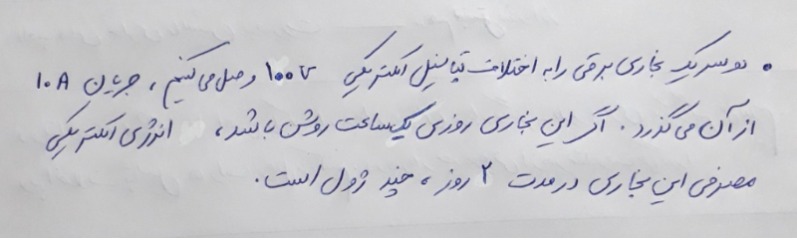 • دو سر یک بخاری برقی را به اختلاف پتانسیل الکتریکی ۱۰۰ V وصل می‌کنیم، جریان ۱۰ A
از آن می‌گذرد. اگر این بخاری روزی یک ساعت روشن باشد، انرژی الکتریکی
مصرفی این بخاری در مدت ۲ روز، چند ژول است.